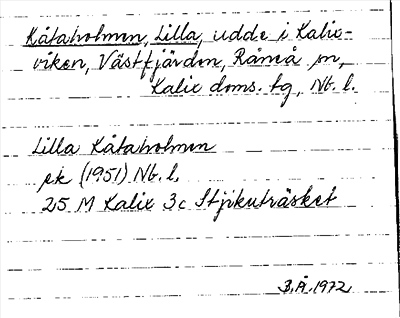 Kåtaholmen, Lilla, udde i Kalix-
viken, Västfjärden, Råneå sn,
Kalix doms. tg, Nb. l.
Lilla Kåtaholmen
ek (1951) Nb. l.
25 M Kalix 3c Stjikuträsket
B.Å. 1972